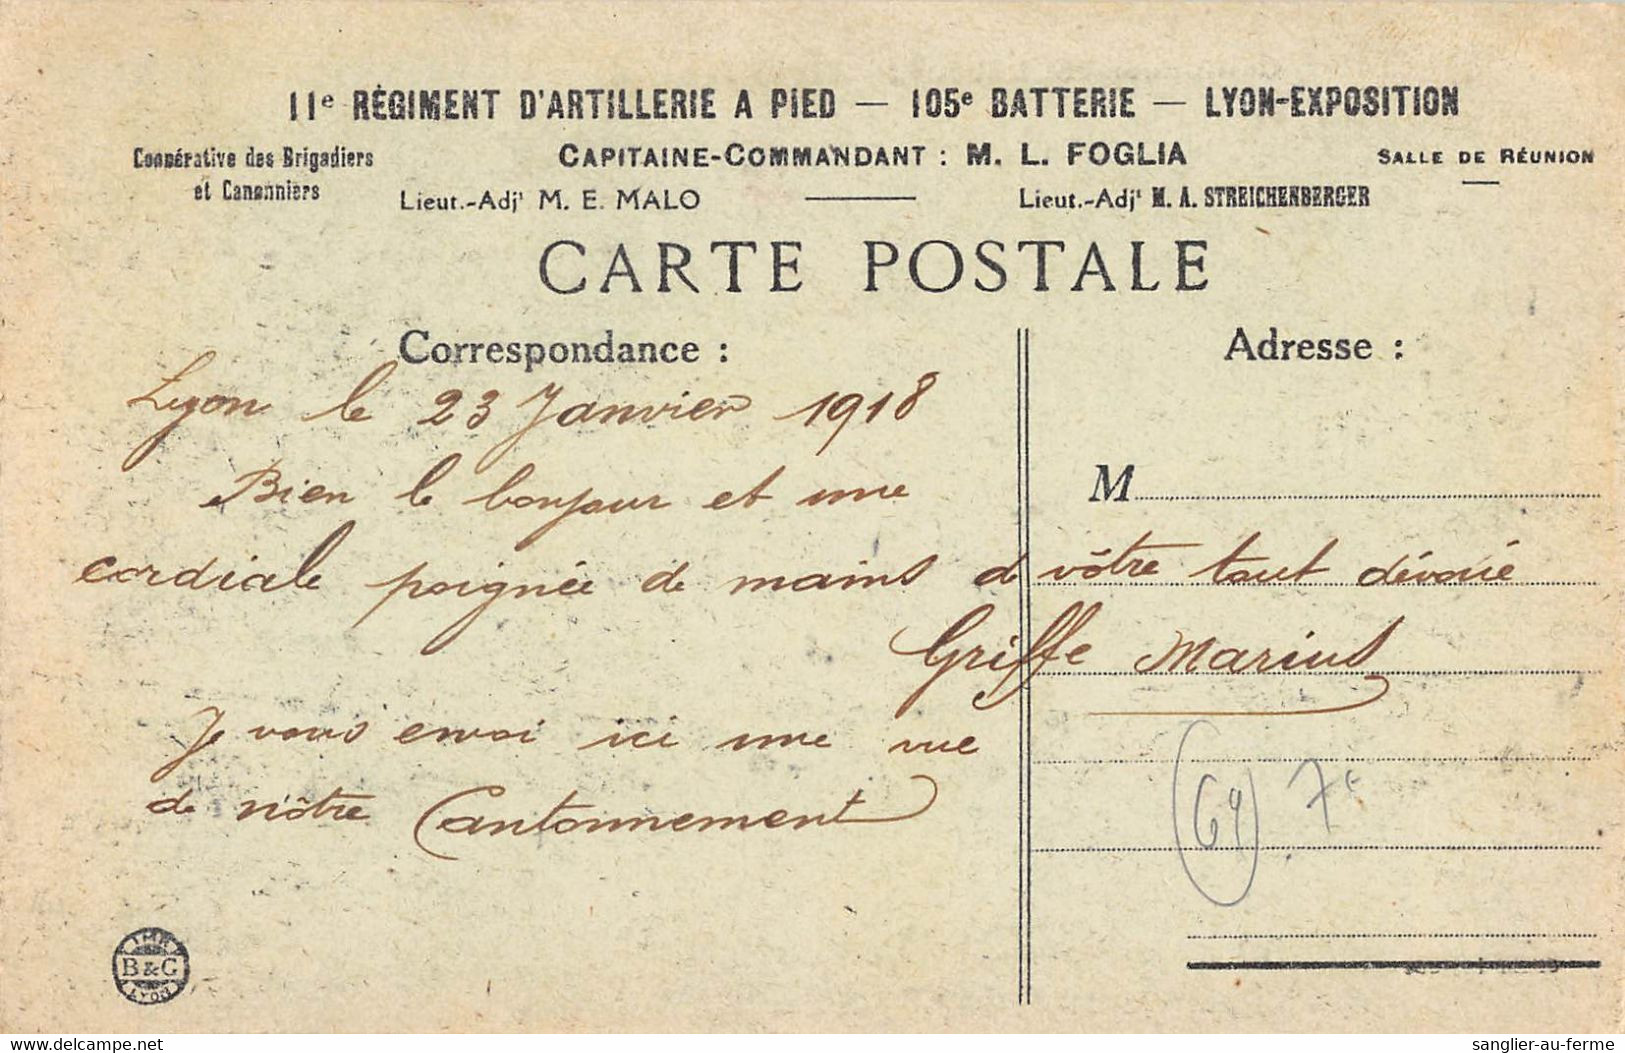 11e RÉGIMENT D'ARTILLERIE A PIED — 105e BATTERIE — LYON-EXPOSITION
Coopérative des Brigadiers
et Canonniers
CAPITAINE-COMMANDANT : M. L. FOGLIA
SALLE DE RÉUNION
Lieut.-Adjt M. E. MALO
Lieut.-Adjt M. A. STREICHENBERGER
CARTE POSTALE
Correspondance :
Adresse :
Lyon le 23 Janvier 1918
Bien le bonjour et une
M
cordiale poignée de mains d vôtre tout dévoué
Griffe Marius
Je vous envoi ici une vue
de nôtre Cantonnement
(69) 7e
IMP
B & G
LYON
delcampe.net
sanglier-au-ferme